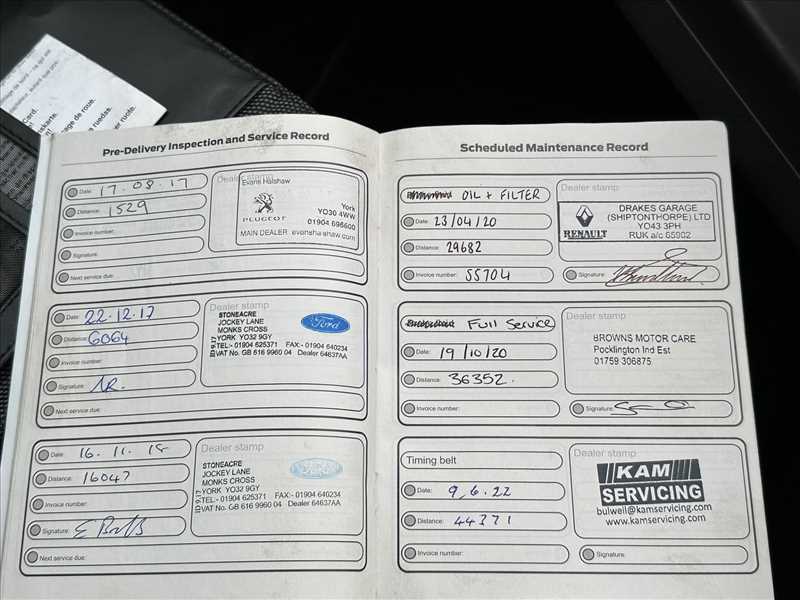 Card.
Pre-Delivery Inspection and Service Record
Dealer stamp
Evans Halshaw
PEUGEOT
York
YO30 4WW
01904 696600
MAIN DEALER evanshalshaw.com
Date: 17.08.17
Distance: 1529
Invoice number:
Signature:
Next service due:
Dealer stamp
STONEACRE
JOCKEY LANE
MONKS CROSS
YORK YO32 9GY
TEL:- 01904 625371 FAX:- 01904 640234
VAT No. GB 616 9960 04 Dealer 64637AA
Ford
Date: 22.12.17
Distance: 6064
Invoice number:
Signature:
Next service due:
Dealer stamp
STONEACRE
JOCKEY LANE
MONKS CROSS
YORK YO32 9GY
TEL:- 01904 625371 FAX:- 01904 640234
VAT No. GB 616 9960 04 Dealer 64637AA
Ford
Date: 16.11.18
Distance: 16047
Invoice number:
Signature:
Next service due:
Scheduled Maintenance Record
OIL + FILTER
Date: 23/04/20
Distance: 29682
Invoice number: 55704
Dealer stamp
RENAULT
DRAKES GARAGE
(SHIPTONTHORPE) LTD
YO43 3PH
RUK a/c 65902
Signature:
Full Service
Date: 19/10/20
Distance: 36352.
Invoice number:
Dealer stamp
BROWNS MOTOR CARE
Pocklington Ind Est
01759 306875
Signature:
Timing belt
Date: 9.6.22
Distance: 44371
Invoice number:
Dealer stamp
KAM
SERVICING
bulwell@kamservicing.com
www.kamservicing.com
Signature: